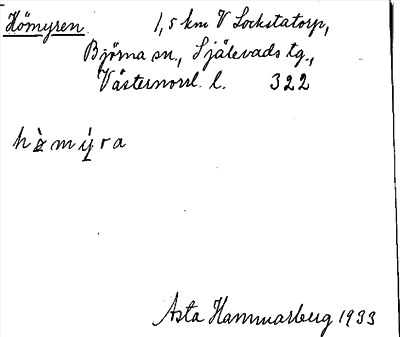 Hömyren. 1,5 km V Lockstatorp,
Björna sn., Själevads tg.,
Västernorrl. l. 322
hö̀mýra
Asta Hammarberg 1933